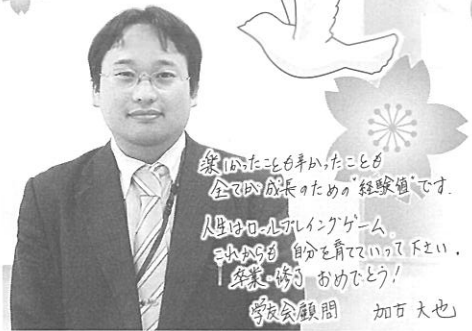 楽しかったことも辛かったことも
全てが成長のための"経験値"です.
人生はロールプレイングゲーム
これからも 自分を育てていって下さい.
卒業・修了 おめでとう!
学友会顧問 加古 大也